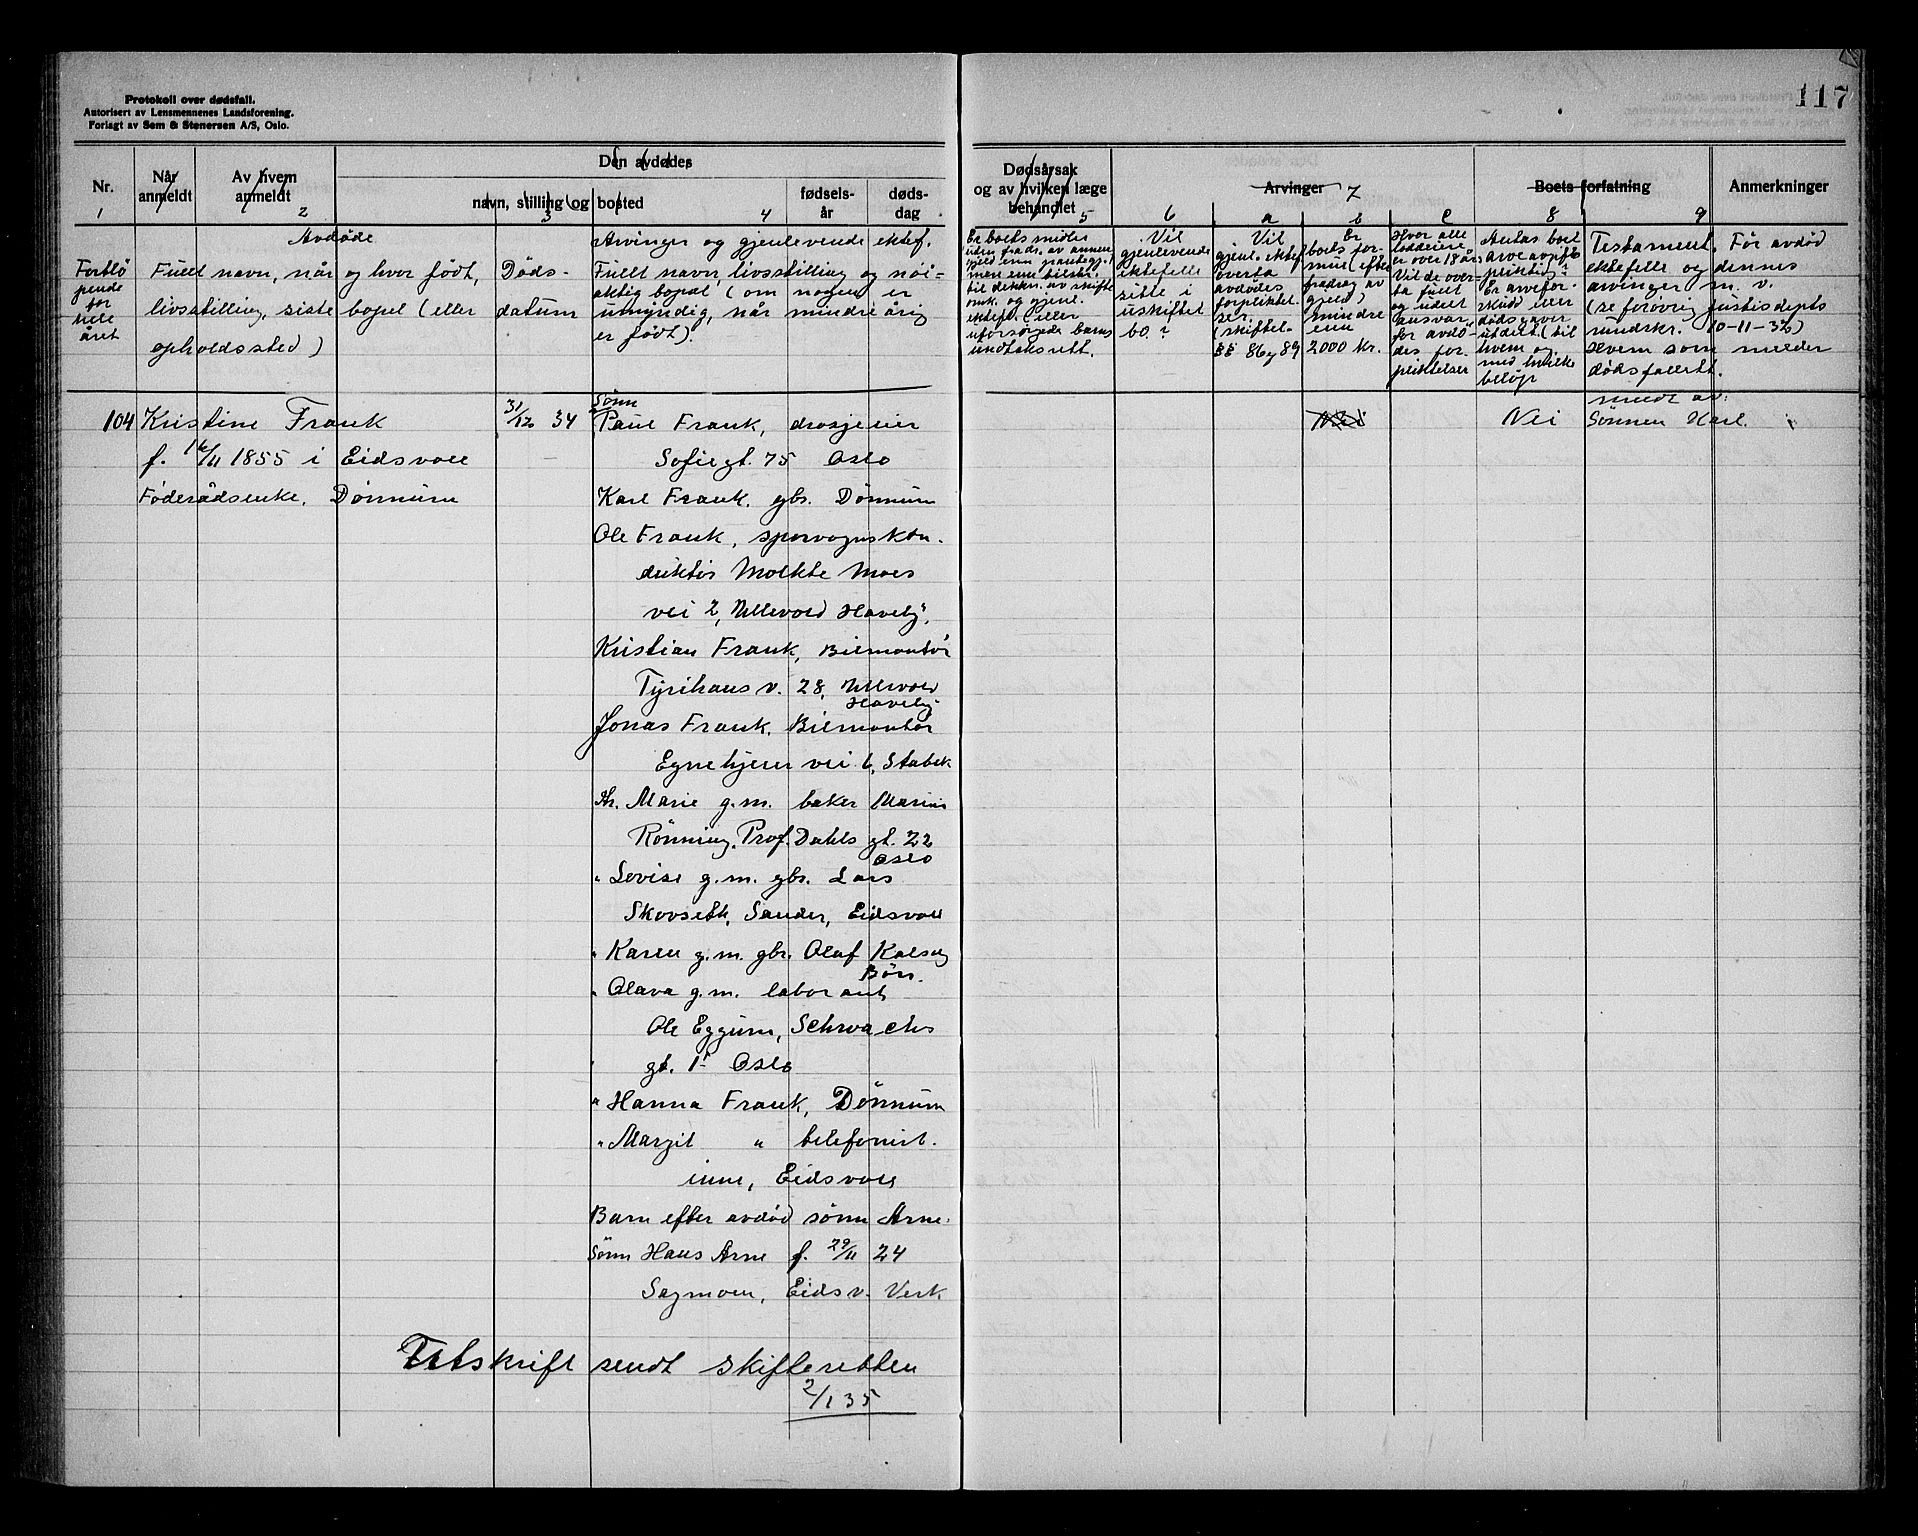 Protokoll over dødsfall.
Autorisert av Lensmennenes Landsforening.
Forlagt av Sem & Stenersen A/S, Oslo.
117
Nr.
Når anmeldt
Av hvem anmeldt
Den avdødes
navn, stilling og bosted
fødsels-
år
døds-
dag
Dødsårsak
og av hvilken læge
behandlet
Arvinger
Boets forfatning
Anmerkninger
1 2 3 4 5 6 7 a b c 8 9
Fortlø
pende
for
hele
året
Avdøde
Fullt navn, når og hvor født,
livsstilling, siste bopel (eller
opholdssted)
Døds-
datum
Arvinger og gjenlevende ektef.
Fullt navn, livsstilling og nøi-
aktig bopel (om nogen er
umyndig, når mindreårig
er født).
Er boets midler
til dekkn. av skifte
omk. og gjenl.
ektef. (eller
uforsørgede barns
undtaksrett.
Vil
gjenlevende
ektefelle
sitte i
uskiftet
bo?
Vil
gjenl. ektef
overta
avdødes
forpliktel-
ser.
(skiftel.
§§ 86 og 89
Er
boets for-
mue (efter
fradrag av
gjeld)
mindre
enn
2000 kr.
Hvor alle
loddeiere
er over 18 år
Vil de over-
ta fullt
og udelt
ansvar
for avdø-
des for-
pliktelser
Antas boet
arveavgifts
pliktig?
Er arvefor-
skudd eller
dødsgaver
utdelt (til
hvem og
med hvilke
beløp
Testament. Før avdød
ektefelle og dennes
arvinger m. v.
(se forøvrig justisdepts
rundskr. 10-11-32)
Hvem som melder
dødsfallet.
104 Kristine Frank 31/12 34
f. 16/11 1855 i Eidsvoll
Føderådsenke, Dønnum
Sønn
Paul Frank, drosjeeier
Sofiegt. 75 Oslo
Karl Frank, gbr. Dønnum
Ole Frank, sporvognskon-
duktør Moltke Moes
vei 2, Ullevold Haveby.
Kristian Frank, Bilmontør
Tyrihans v. 28, Ullevold
Haveby
Jonas Frank, Bilmontør
Egnehjem vei 6, Stabek
Dtr. Marie g.m. baker Marius
Rønning, Prof. Dahls gt. 22
Oslo
" Lovise g.m. gbr. Lars
Skovseth, Sander, Eidsvoll
" Karen g.m. gbr. Olaf Kolseg
Bøn.
" Olava g.m. laborant
Ole Eggum, Schwachs
gt. 1 Oslo
" Hanna Frank, Dønnum
" Margit " telefonist-
inne, Eidsvoll
Barn efter avdød sønn Arne:
Sønn Hans Arne f. 29/11 24
Sagmoen, Eidsv. Verk
Nei
Nei
meldt av:
Sønnen Karl.
Utskrift sendt skifteretten
2/1 35